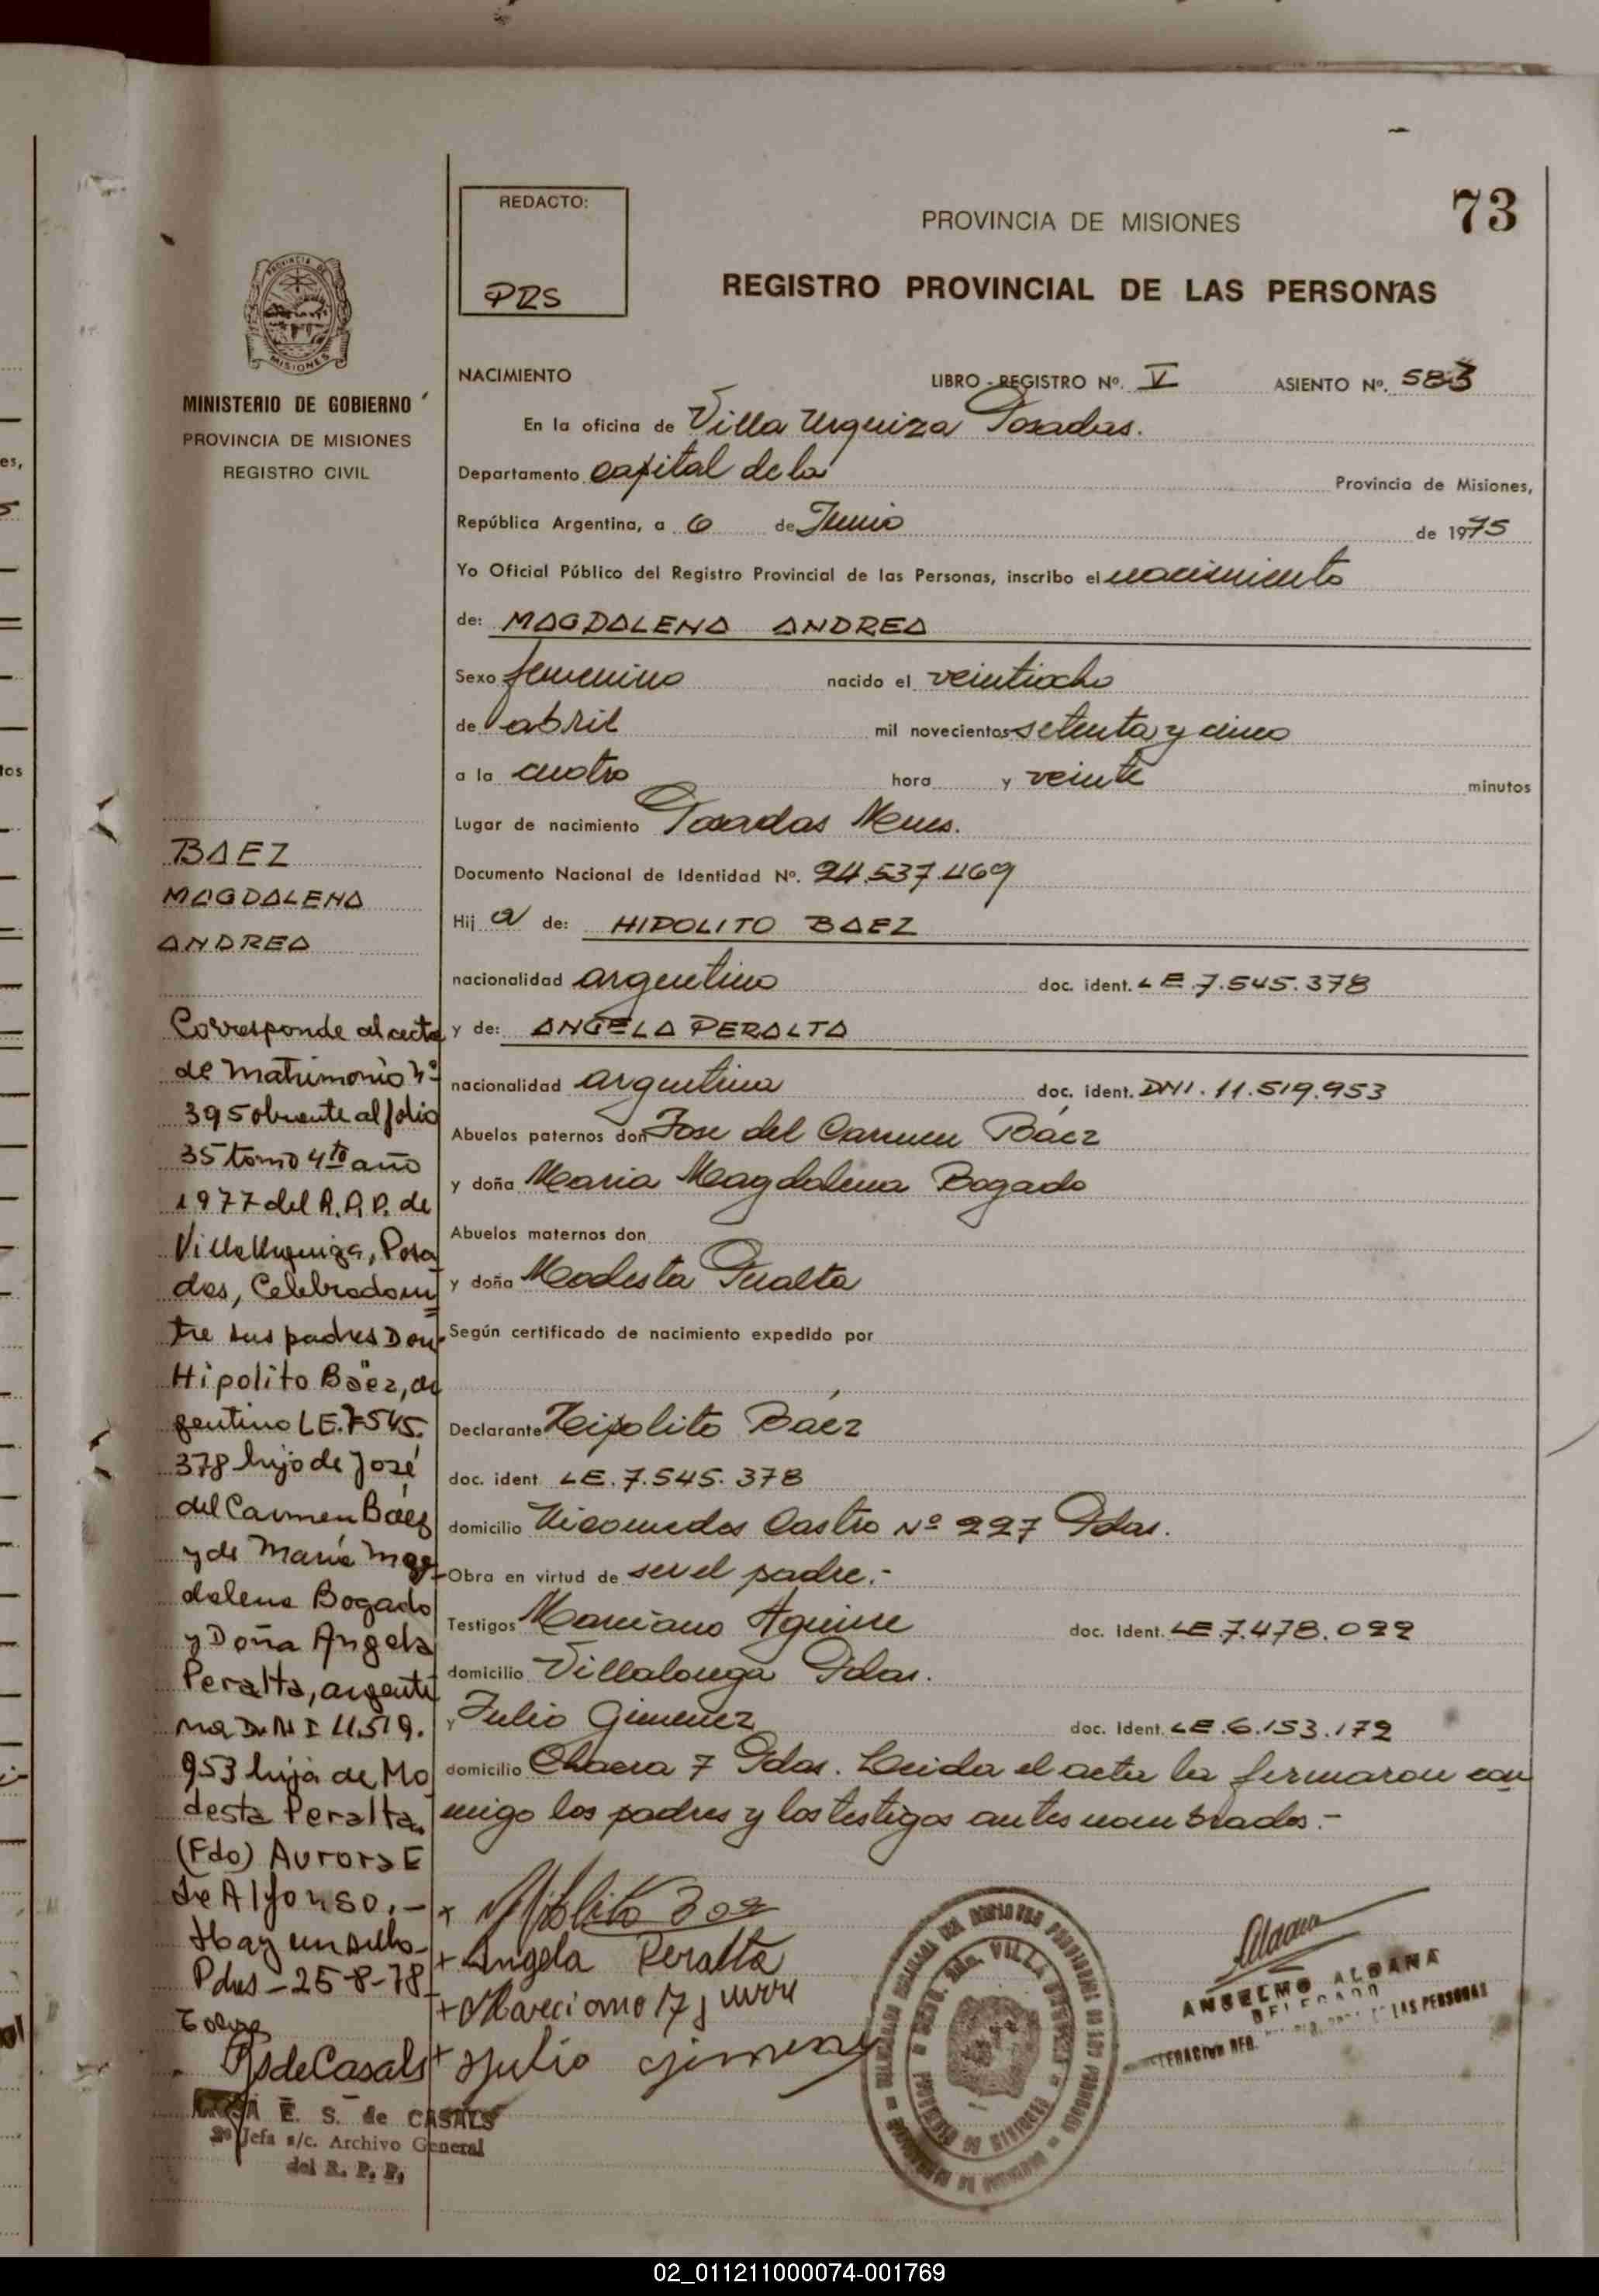 73
REDACTO:
PRS
PROVINCIA DE MISIONES
REGISTRO PROVINCIAL DE LAS PERSONAS
PROVINCIA DE
MISIONES
MINISTERIO DE GOBIERNO
PROVINCIA DE MISIONES
REGISTRO CIVIL
NACIMIENTO LIBRO - REGISTRO Nº. V ASIENTO Nº. 583
En la oficina de Villa Urquiza Posadas.
Departamento capital de la Provincia de Misiones,
República Argentina, a 6 de Junio de 1975
Yo Oficial Público del Registro Provincial de las Personas, inscribo el nacimiento
de: MAGDALENA ANDREA
Sexo femenino nacido el veintiocho
de abril mil novecientos setenta y cinco
a la cuatro hora y veinte minutos
Lugar de nacimiento Posadas Mnes.
Documento Nacional de Identidad Nº. 24.537.469
Hij a de: HIPOLITO BAEZ
nacionalidad argentino doc. ident. LE.7.545.378
y de: ANGELA PERALTA
nacionalidad argentina doc. ident. DNI. 11.519.953
Abuelos paternos don Jose del Carmen Báez
y doña Maria Magdalena Bogado
Abuelos maternos don
y doña Modesta Peralta
Según certificado de nacimiento expedido por
Declarante Hipolito Báez
doc. ident. LE.7.545.378
domicilio Nicomedes Castro Nº 227 Pdas.
Obra en virtud de ser el padre.-
Testigos Marciano Aguirre doc. Ident. LE.7.478.022
domicilio Villalonga Pdas.
y Julio Gimenez doc. Ident. LE.6.153.172
domicilio Chacra 7 Pdas. Leida el acta la firmaron con
migo los padres y los testigos antes nombrados.-
BAEZ
MAGDALENA
ANDREA
Corresponde al acta
de Matrimonio Nº
395 obrante al folio
35 tomo 4to año
1977 del R.P.P. de
Villa Urquiza, Posa
das, Celebrado en
tre sus padres Don
Hipolito Báez, ar
gentino LE.7545.
378 hijo de José
del Carmen Báez
y de María Mag
dalena Bogado
y Doña Angela
Peralta, argenti
na D.N.I 11.519.
953 hija de Mo
desta Peralta.
(Fdo) Aurora E
de Alfonso.-
Hay un sello-
Pdas-25-8-78
+ Angela Peralta
+ Julio Gimenez
de Casals
E. S. de CASALS
2ª Jefa s/c. Archivo General
del R. P. P.
VILLA URQUIZA
ANSELMO ALDANA
DELEGADO
LAS PERSONAS
02_011211000074-001769